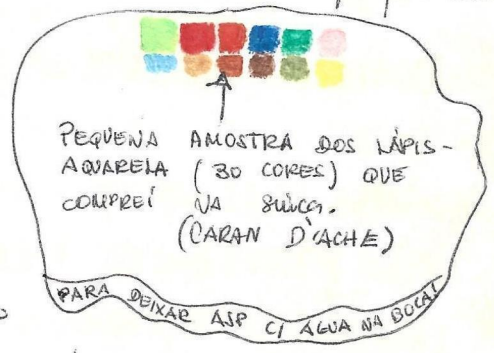 PEQUENA AMOSTRA DOS LÁPIS-
AQUARELA (30 CORES) QUE
COMPREI NA SUÍÇA.
(CARAN D'ACHE)
PARA DEIXAR ASP C/ ÁGUA NA BOCA!